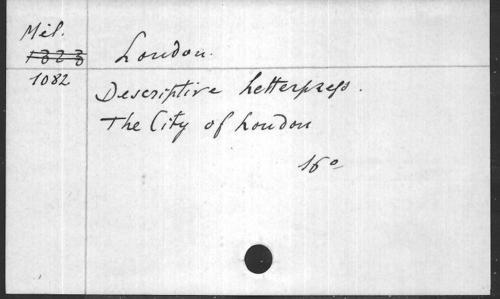 Mil.
1323 London.
1082
Descriptive Letterpress.
The City of London
16o